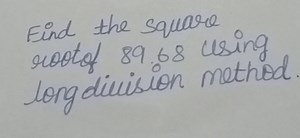 Find the square
root of 89.68 using
long division method.